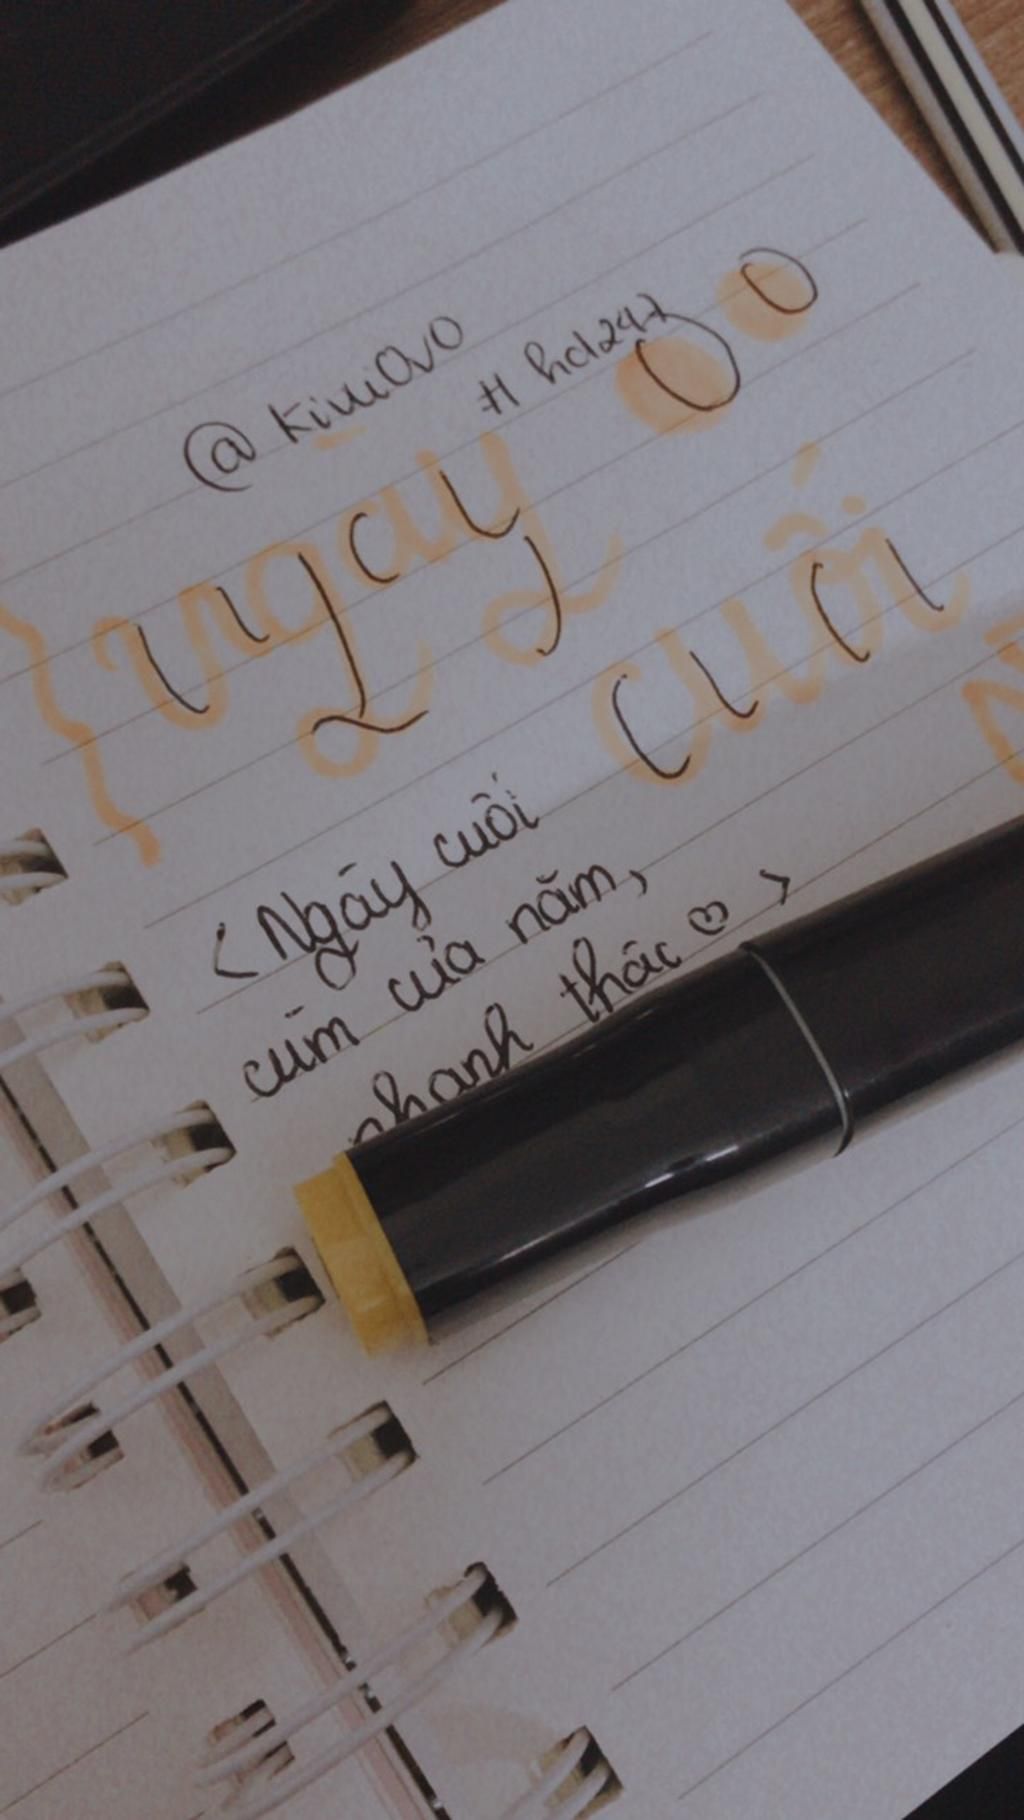 @kiwiOvO
# hd247
ngày
cuối
< Ngày cuối
cùm của năm,
nhanh thác ♡ >